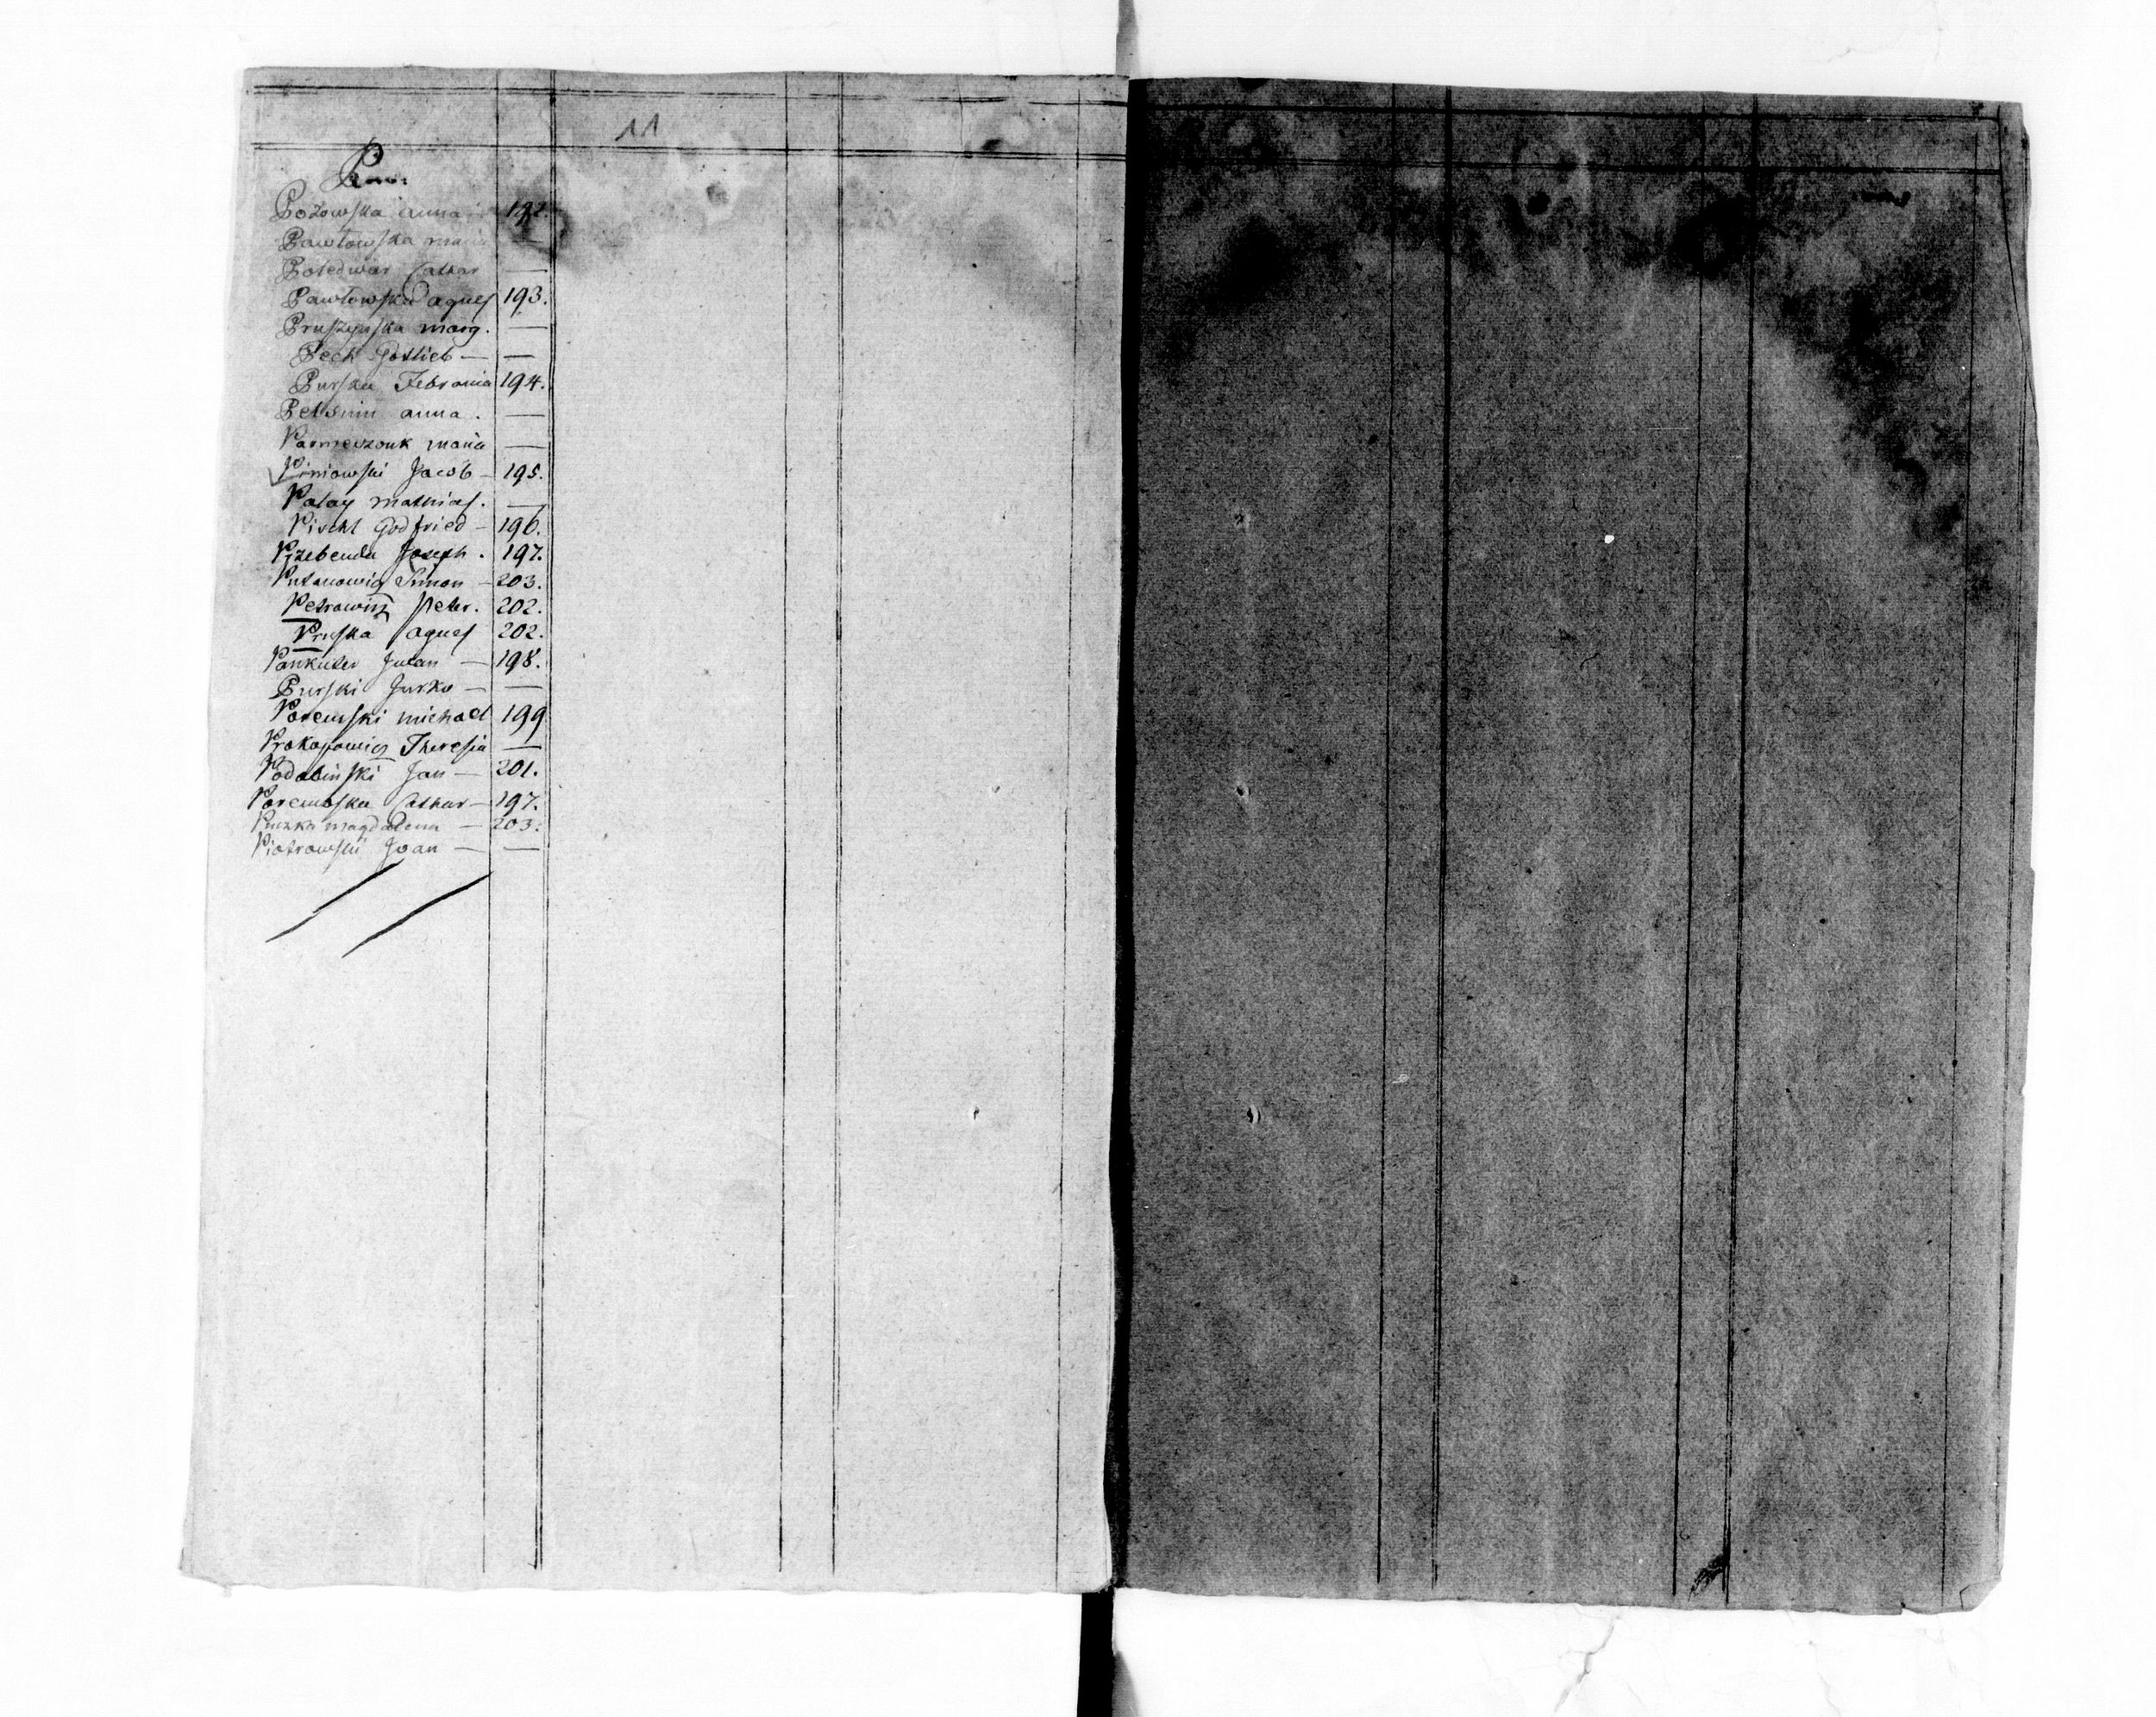 11
P
Pozowska anna 192.
Pawlowska maria
Poledwiar Cathar —
Pawlowska agnes 193.
Pruszynska marg. —
Pech Gottlieb — —
Purska Febronia 194.
anna. —
maria —
Jacob – 195.
Palay mathias. —
Pischl Godfried – 196.
Przebenda Joseph. 197.
Putanowicz Simon – 203.
Petrowicz Peter. 202.
Pruska agnes 202.
Juean — 198.
Purski Jurko — —
Poremski michael 199
Prokopowicz Theresia —
Podolinski Jan — 201.
Poremska Cathar — 197.
Puzka magdalena — 203.
Piotrowski Joan — —